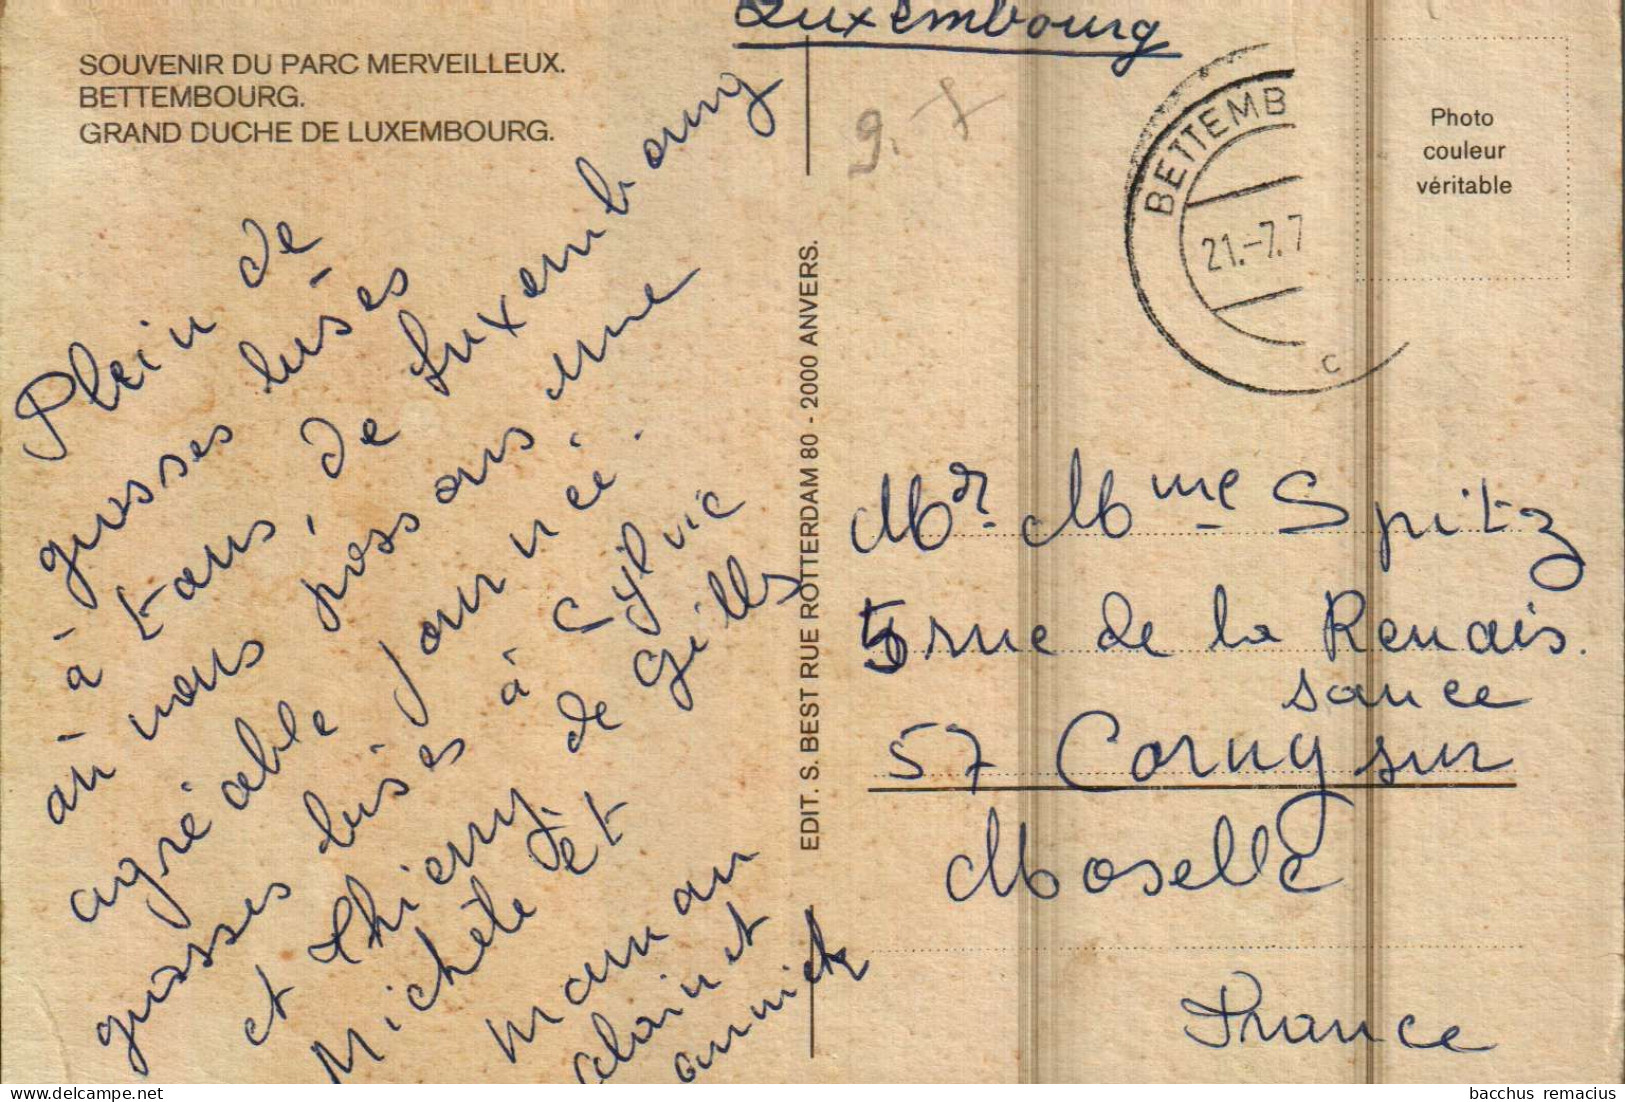 Luxembourg
SOUVENIR DU PARC MERVEILLEUX.
BETTEMBOURG.
GRAND DUCHE DE LUXEMBOURG.
Plein de
grosses bises
à tous, de Luxembourg
où nous passons une
agréable journée.
grosses bises à Sylvie
et Thierry de Gilles
Michèle et
maman
alain et
annick
EDIT. S. BEST RUE ROTTERDAM 80 - 2000 ANVERS.
9.
BETTEMB
21.-7.7
c
Photo
couleur
véritable
Mr. Mme Spitz
5 rue de la Renais.
sance
57 Corny sur
Moselle
France
bacchus remacius